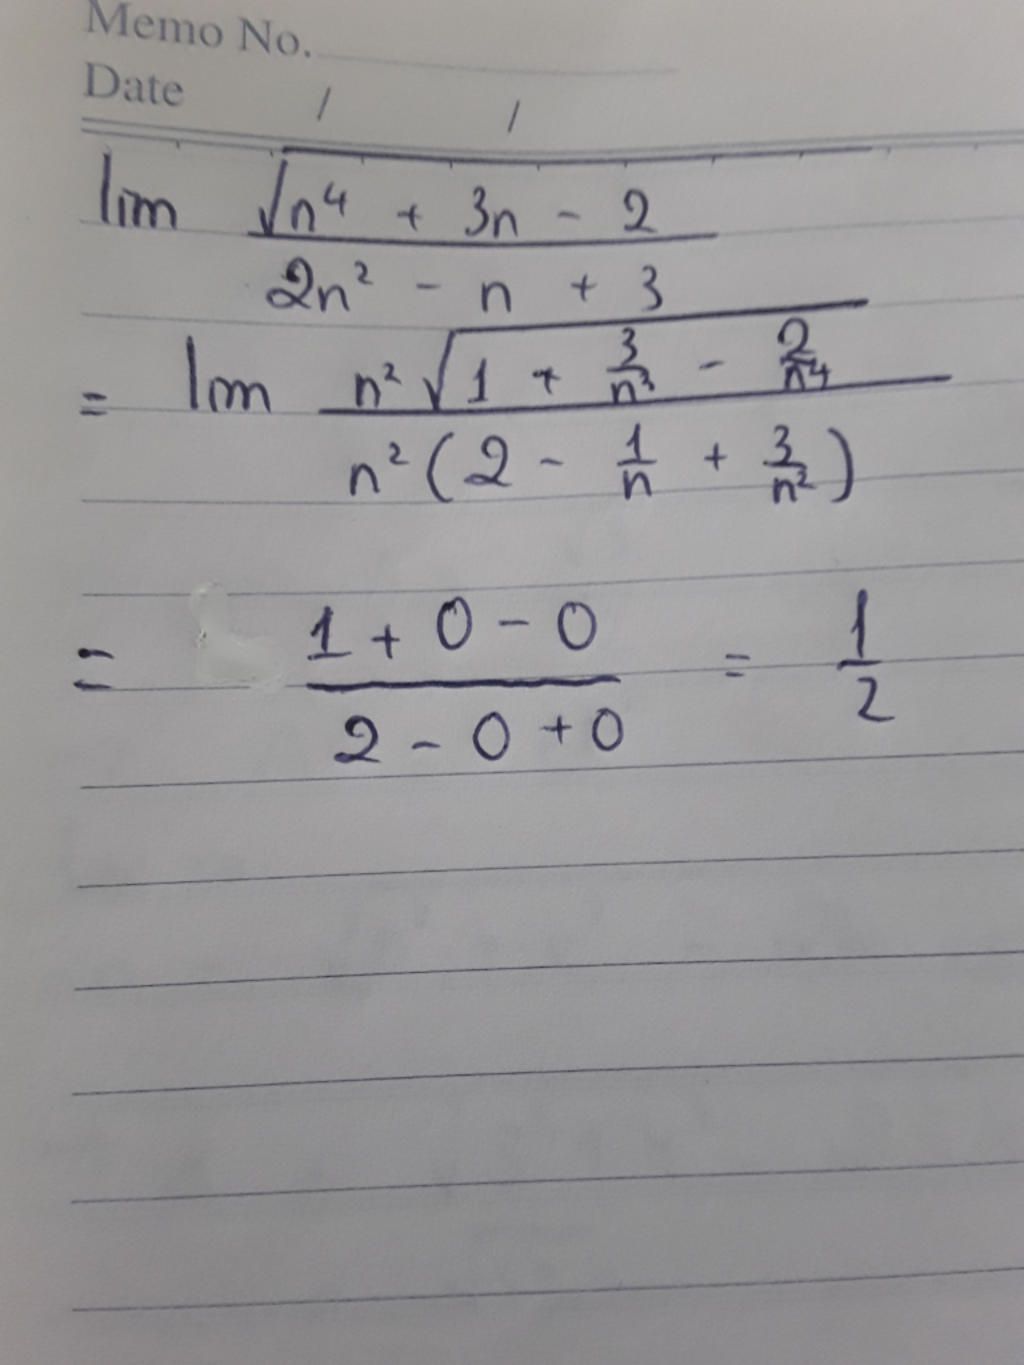 Memo No.
Date / /
lim √(n⁴ + 3n - 2) / (2n² - n + 3)
= lim n²√(1 + 3/n³ - 2/n⁴) / n²(2 - 1/n + 3/n²)
= (1 + 0 - 0) / (2 - 0 + 0) = 1/2